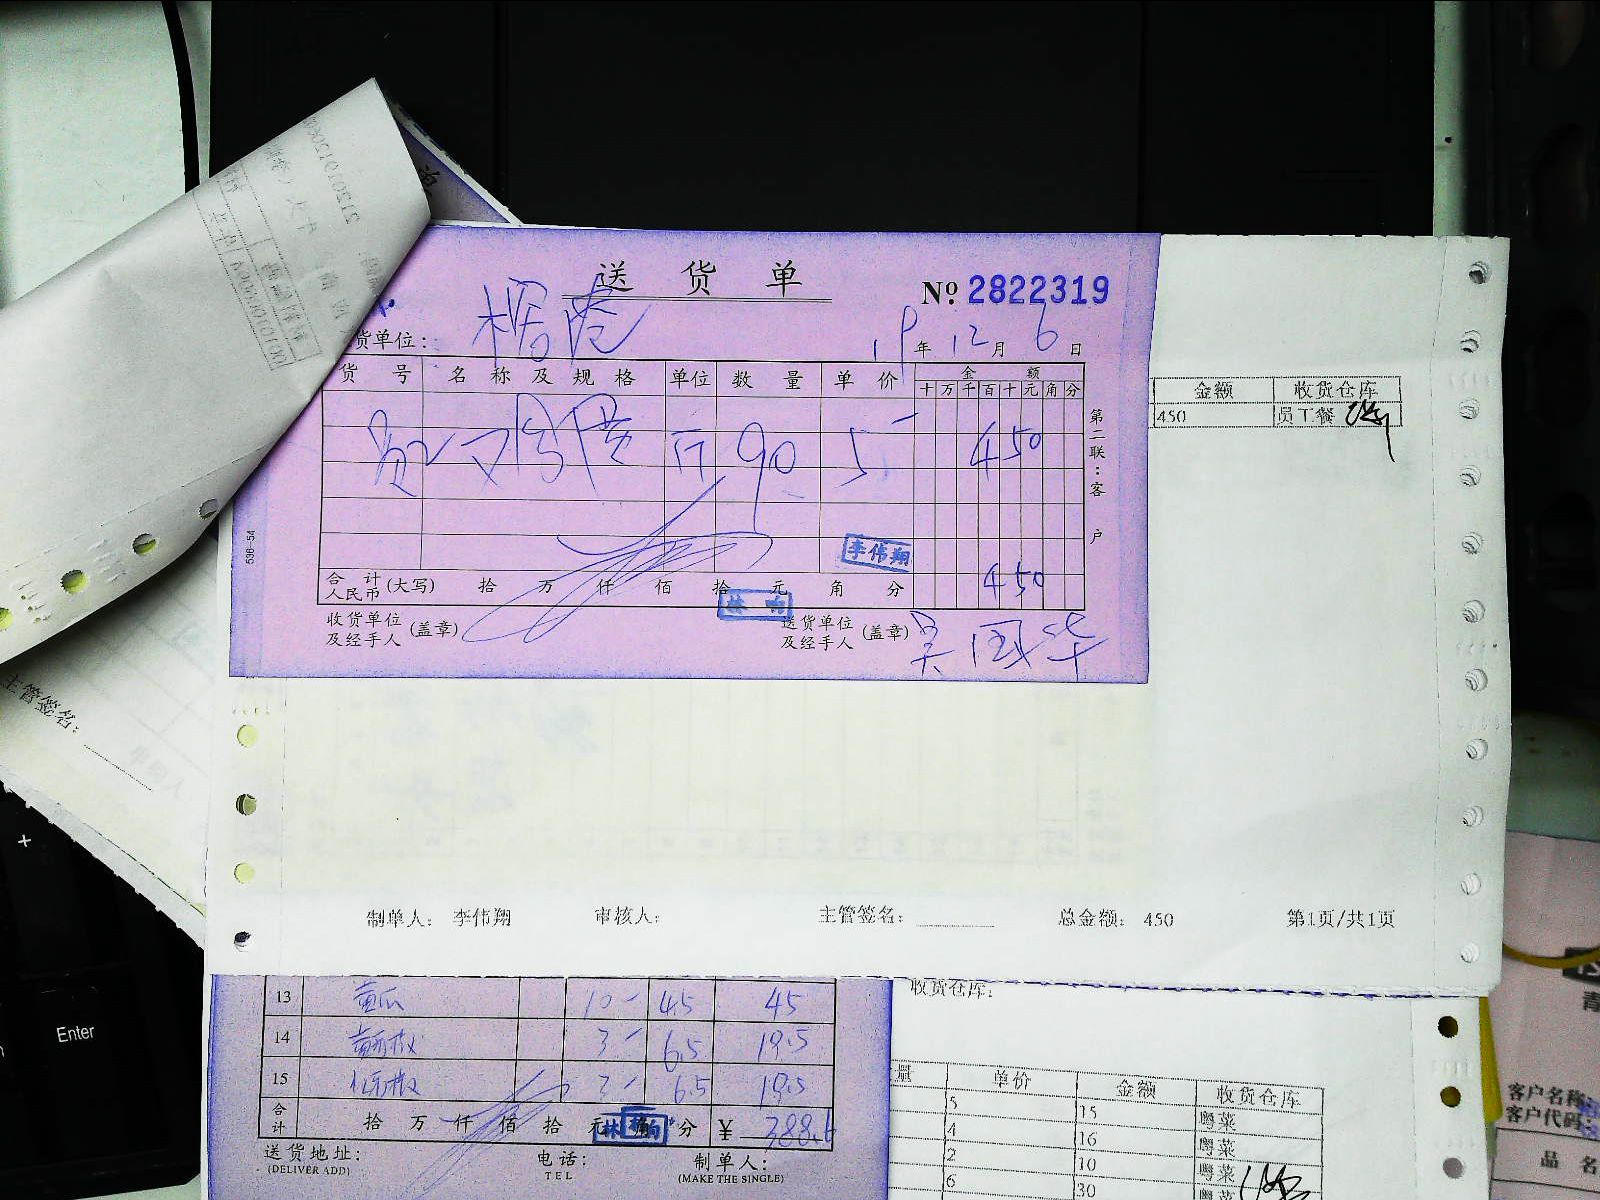 送货单
№ 2822319
货单位:
19年12月6日
货号 名称及规格 单位 数量 单价 金额
十万千百十元角分
斤 90 5 450
第二联:客户
536-54
李伟翔
合计人民币(大写) 拾 万 仟 佰 拾 元 角 分 450
收货单位及经手人(盖章)
送货单位及经手人(盖章) 吴国华
金额 收货仓库
450 员工餐
主管签名:
制单人: 李伟翔 审核人: 主管签名: 总金额: 450 第1页/共1页
收货仓库:
13 黄瓜 10 4.5 45
14 3 6.5 19.5
15 3 6.5 19.5
合计 拾 万 仟 佰 拾 元 分 ¥ 388.5
送货地址:
(DELIVER ADD)
电话:
TEL
制单人:
(MAKE THE SINGLE)
量 单价 金额 收货仓库
5 15 粤菜
4 16 粤菜
2 10 粤菜
6 30 粤菜
客户名称:
客户代码:
品名
青
+
Enter